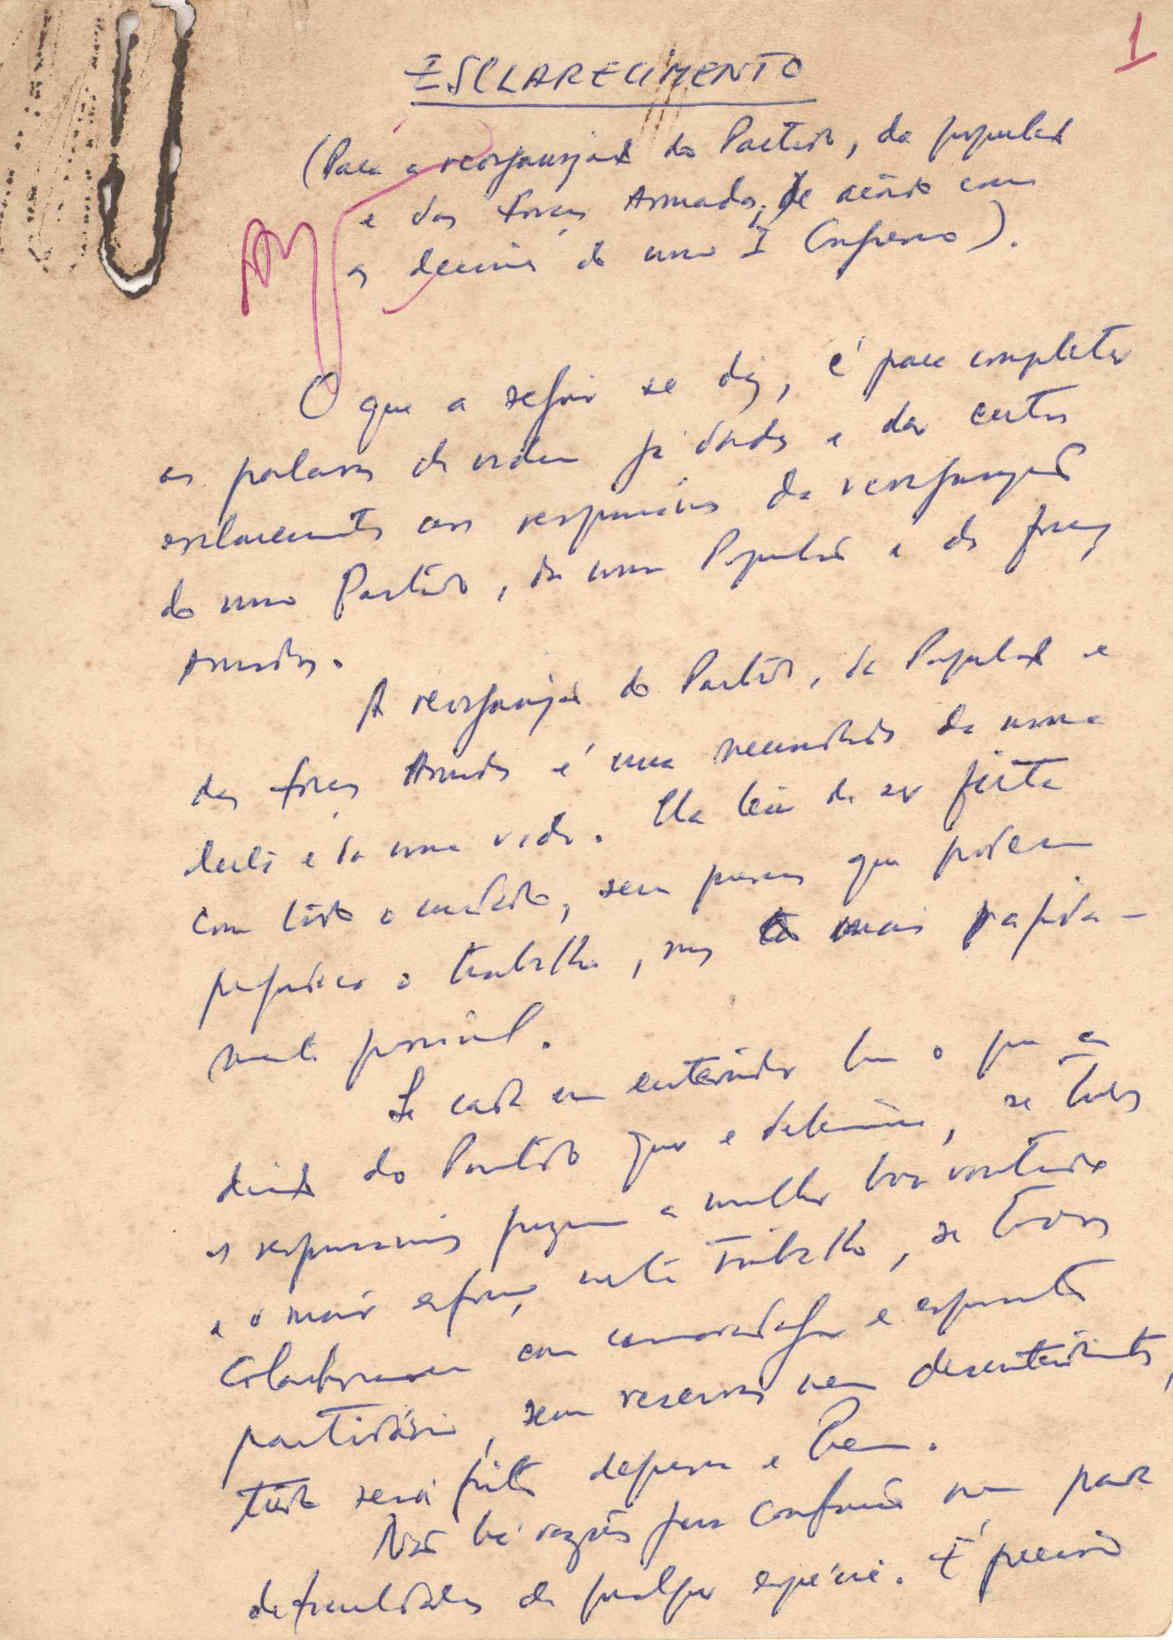 1
ESCLARECIMENTO
(Para a reorganização do Partido, da população
e das Forças Armadas, de acôrdo com
as decisões do nosso I Congresso).
O que a seguir se diz, é para completar
as palavras de ordem já dadas e dar certos
esclarecimentos aos responsáveis da reorganização
do nosso Partido, da nossa População e das forças
Armadas.
A reorganização do Partido, da População e
das forças Armadas é uma necessidade da nossa
luta e da nossa vida. Ela tem de ser feita
com todo o cuidado, sem pressas que podem
prejudicar o trabalho, mas o mais rapida-
mente possível.
Se cada um entender bem o que a
direcção do Partido quer e determina, se todos
os responsáveis puzerem a melhor boa vontade
e o maior esforço neste trabalho, se todos
colaborarem com camaradagem e espírito
partidário, sem reservas nem desentendimentos,
tudo será feito depressa e bem.
Não há razões para confusão nem para
dificuldades de qualquer espécie. É preciso